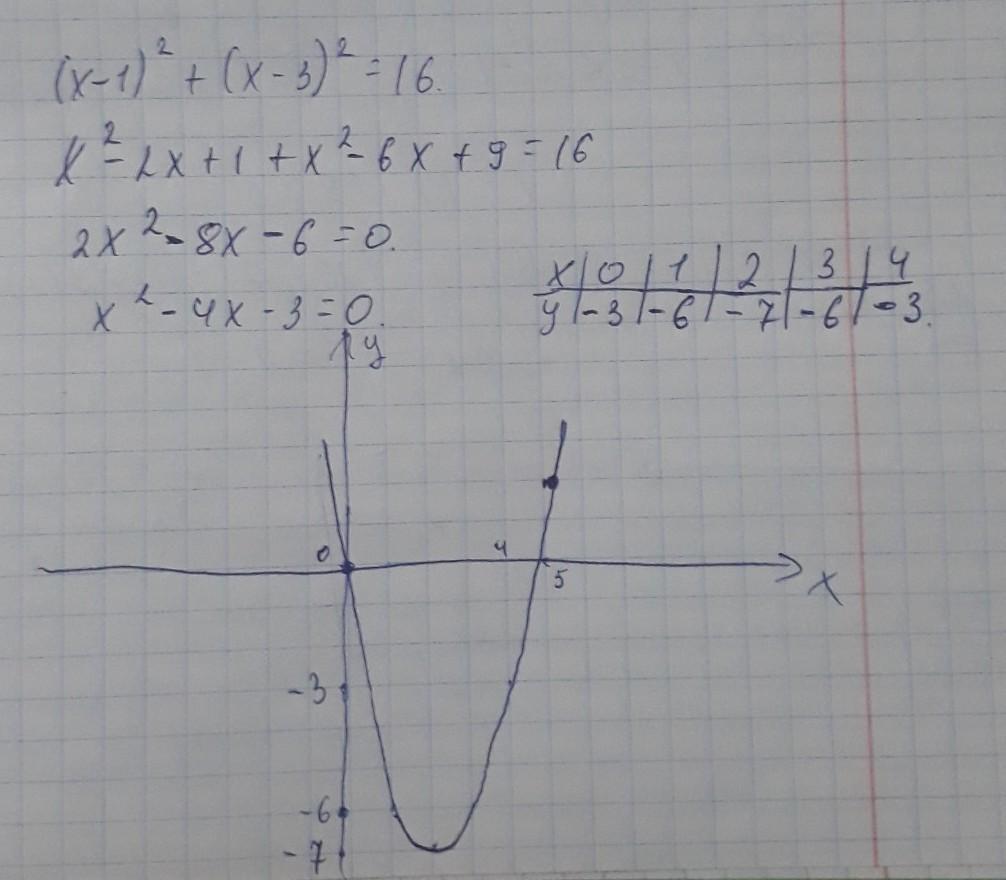 (x-1)² + (x-3)² = 16.
x² - 2x + 1 + x² - 6x + 9 = 16
2x² - 8x - 6 = 0.
x² - 4x - 3 = 0.
x | 0 | 1 | 2 | 3 | 4
y | -3 | -6 | -7 | -6 | -3.
y
0 4
5 x
-3
-6
-7